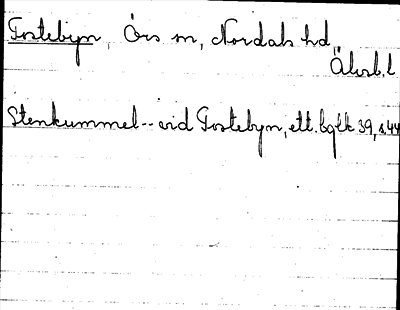 Fostebyn, Örs sn, Nordals hd,
Älvsb. l
Stenkummel -- vid Fostebyn, ett. bglk 39, s. 44